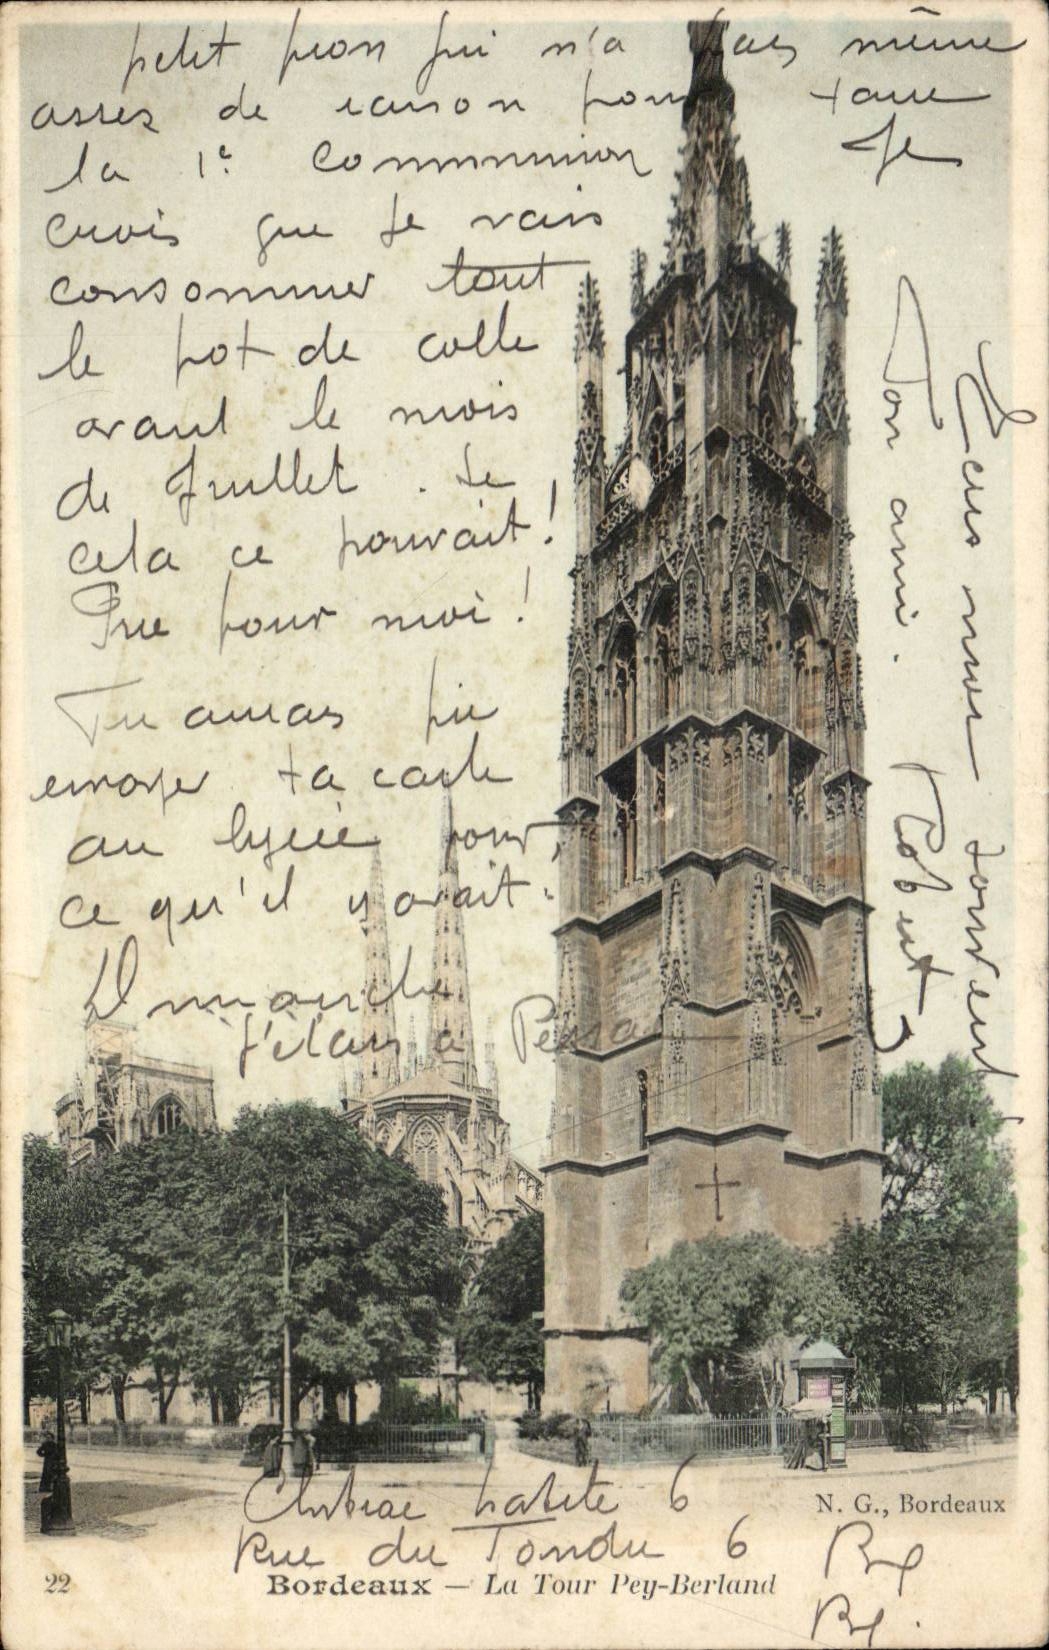 petit pion qui n'a pas même
assez de raison pour faire
la 1e communion Je
crois que je vais
consommer tout
le pot de colle
avant le mois
de Juillet. Se
cela ce pourrait!
Que pour moi!
Tu aurais pu
envoyer ta carte
au lycée pour
ce qu'il y avait.
Dimanche
j'étais a Pessac
Ecris moi souvent
Ton ami.
Robert
habite 6
Rue du Tondu 6
Bx
Bx.
N. G., Bordeaux
22 Bordeaux — La Tour Pey-Berland